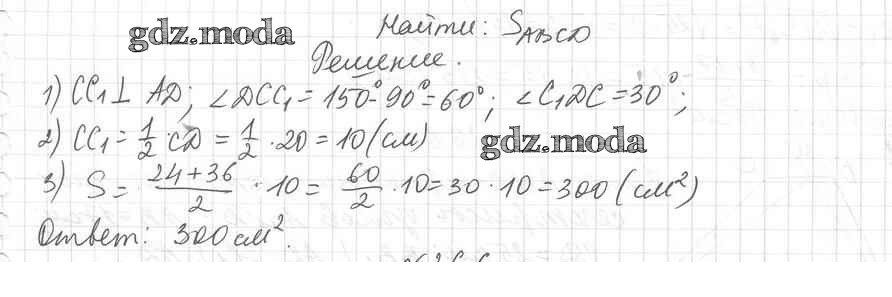 Найти: S_ABCD
gdz.moda
Решение.
1) CC₁⊥ AD; ∠DCC₁ = 150° - 90° = 60°; ∠C₁DC = 30°;
2) CC₁ = 1/2 CD = 1/2 · 20 = 10 (см)
gdz.moda
3) S = (24+36)/2 · 10 = 60/2 · 10 = 30 · 10 = 300 (см²)
Ответ: 300 см².